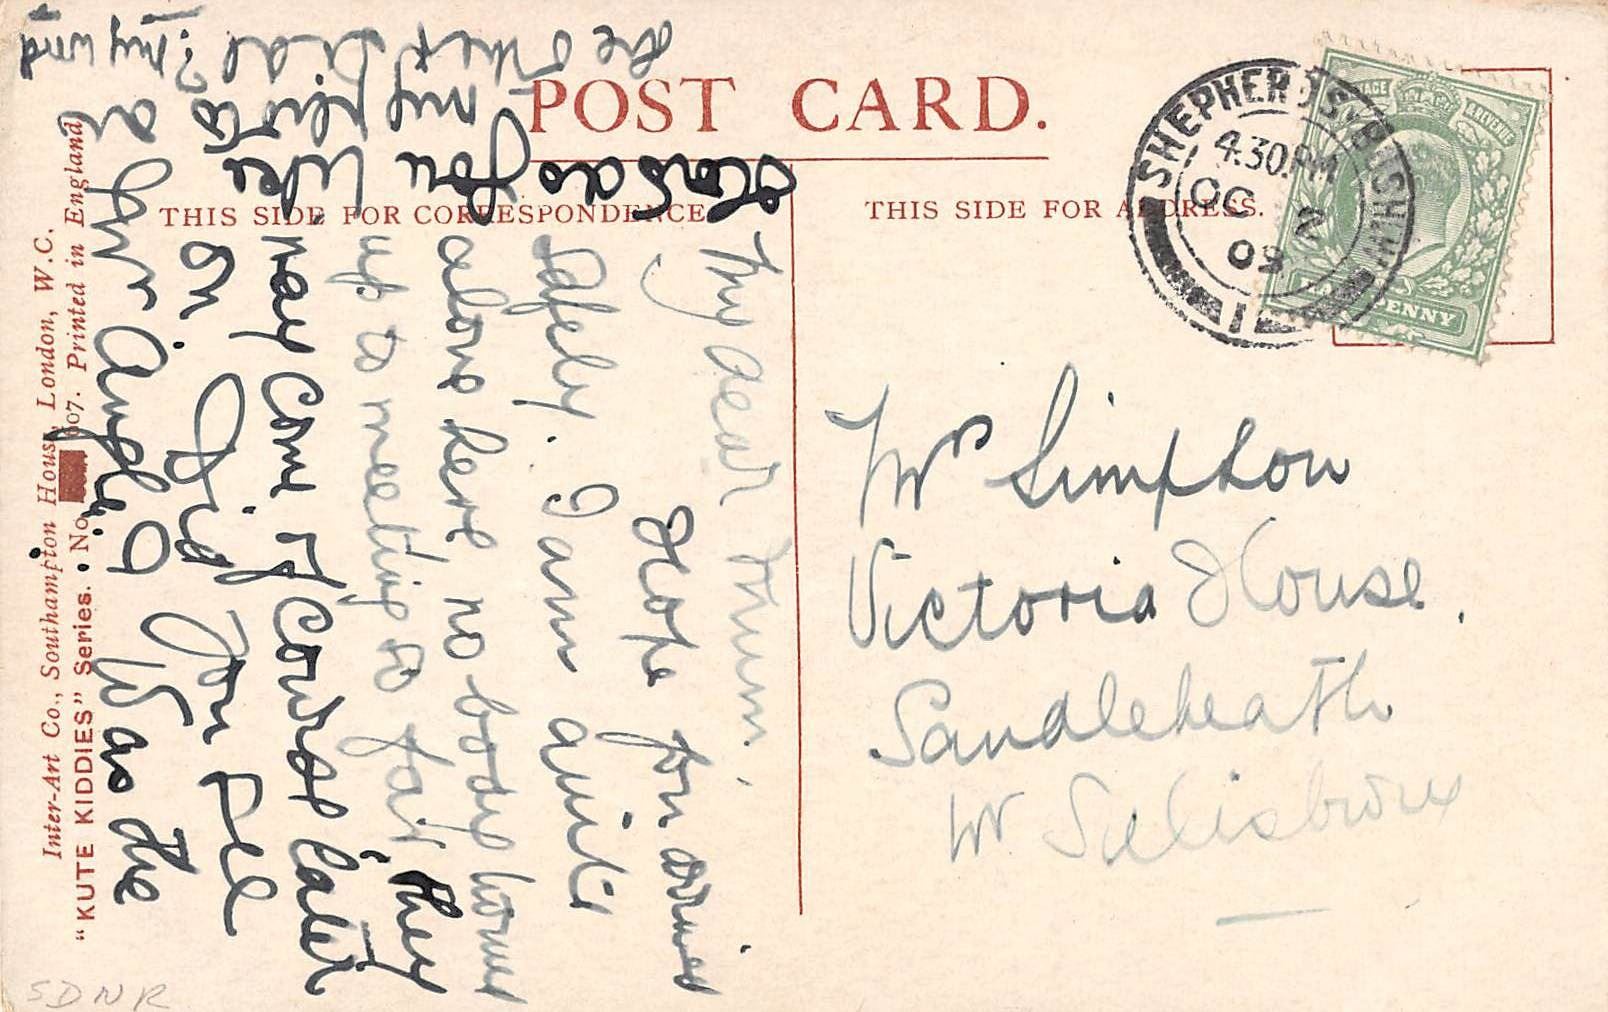 POST CARD.
THIS SIDE FOR CORRESPONDENCE
THIS SIDE FOR ADDRESS.
SHEPHERDS BUSH.W
4.30.PM
OC 2
09
1
POSTAGE & REVENUE
HALFPENNY
Mrs Simpson
Victoria House.
Sandleheath
Nr Salisbury
My dear Mum.
Hope you arrived
safely. I am quite
alone here no body turned
up to meeting so far, they
may come of course later
on. Did you see
Mr Was the
you like
my photo
the other side? my word
Inter-Art Co., Southampton House, London, W.C.
"KUTE KIDDIES" Series. No. 007. Printed in England
SDNR